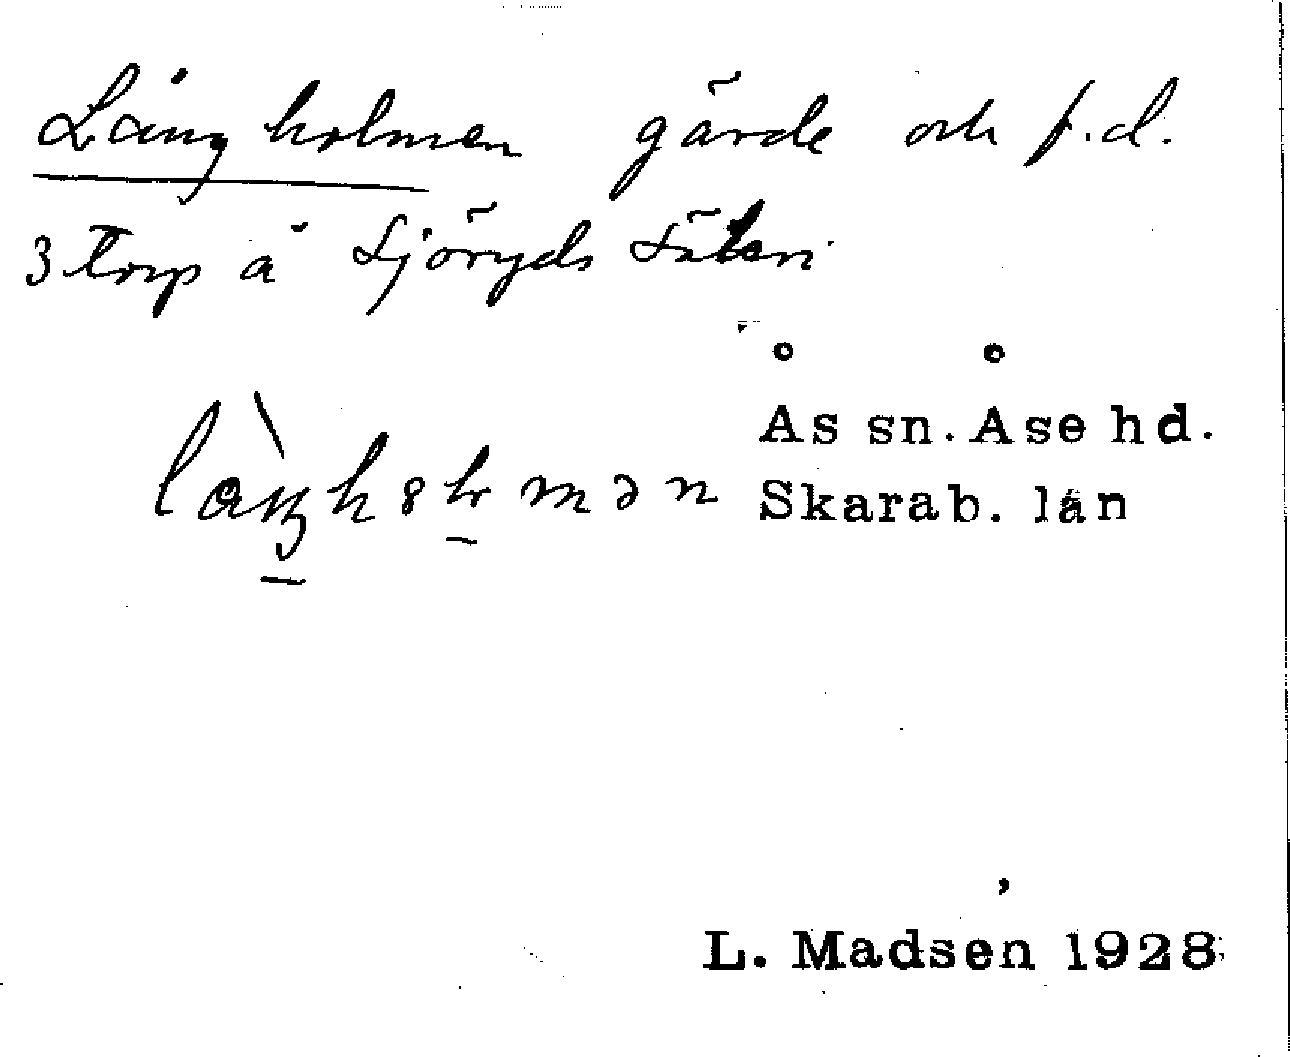 Långholmen gärde och f.d.
3 torp å Sjöryds Säteri
Ås sn. Åse hd.
Skarab. län
L. Madsen 1928